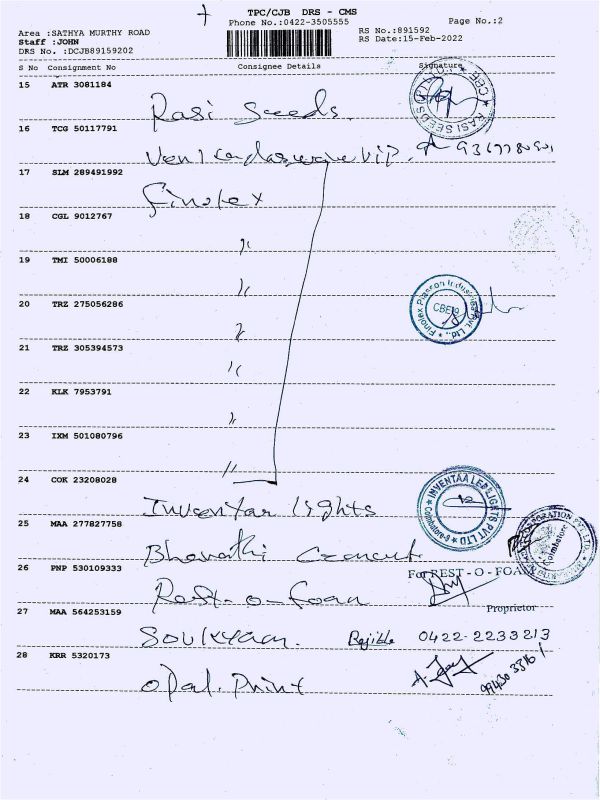 TPC/CJB DRS - CMS
Phone No.:0422-3505555
Page No.:2
Area :SATHYA MURTHY ROAD
Staff :JOHN
DRS No. :DCJB89159202
RS No.:891592
RS Date:15-Feb-2022
S No Consignment No Consignee Details Signature
15 ATR 3081184
Rasi Seeds.
RASI SEEDS CBE
16 TCG 50117791
VIP.
17 SLM 289491992
Finolex
18 CGL 9012767
"
19 TMI 50006188
"
20 TRZ 275056286
"
Finolex Plasson Industries Pvt. Ltd.,
CBE
21 TRZ 305394573
"
22 KLK 7953791
"
23 IXM 501080796
"
24 COK 23208028
Inventaa lights
INVENTAA LED LIGHTS PVT LTD
Coimbatore-6
25 MAA 277827758
Bharathi Cement
CORPORATION PVT. LTD.
Coimbatore
26 PNP 530109333
Rest-o-foam
For REST - O - FOAM
Proprietor
27 MAA 564253159
0422-2233213
28 KRR 5320173
Opal. Print